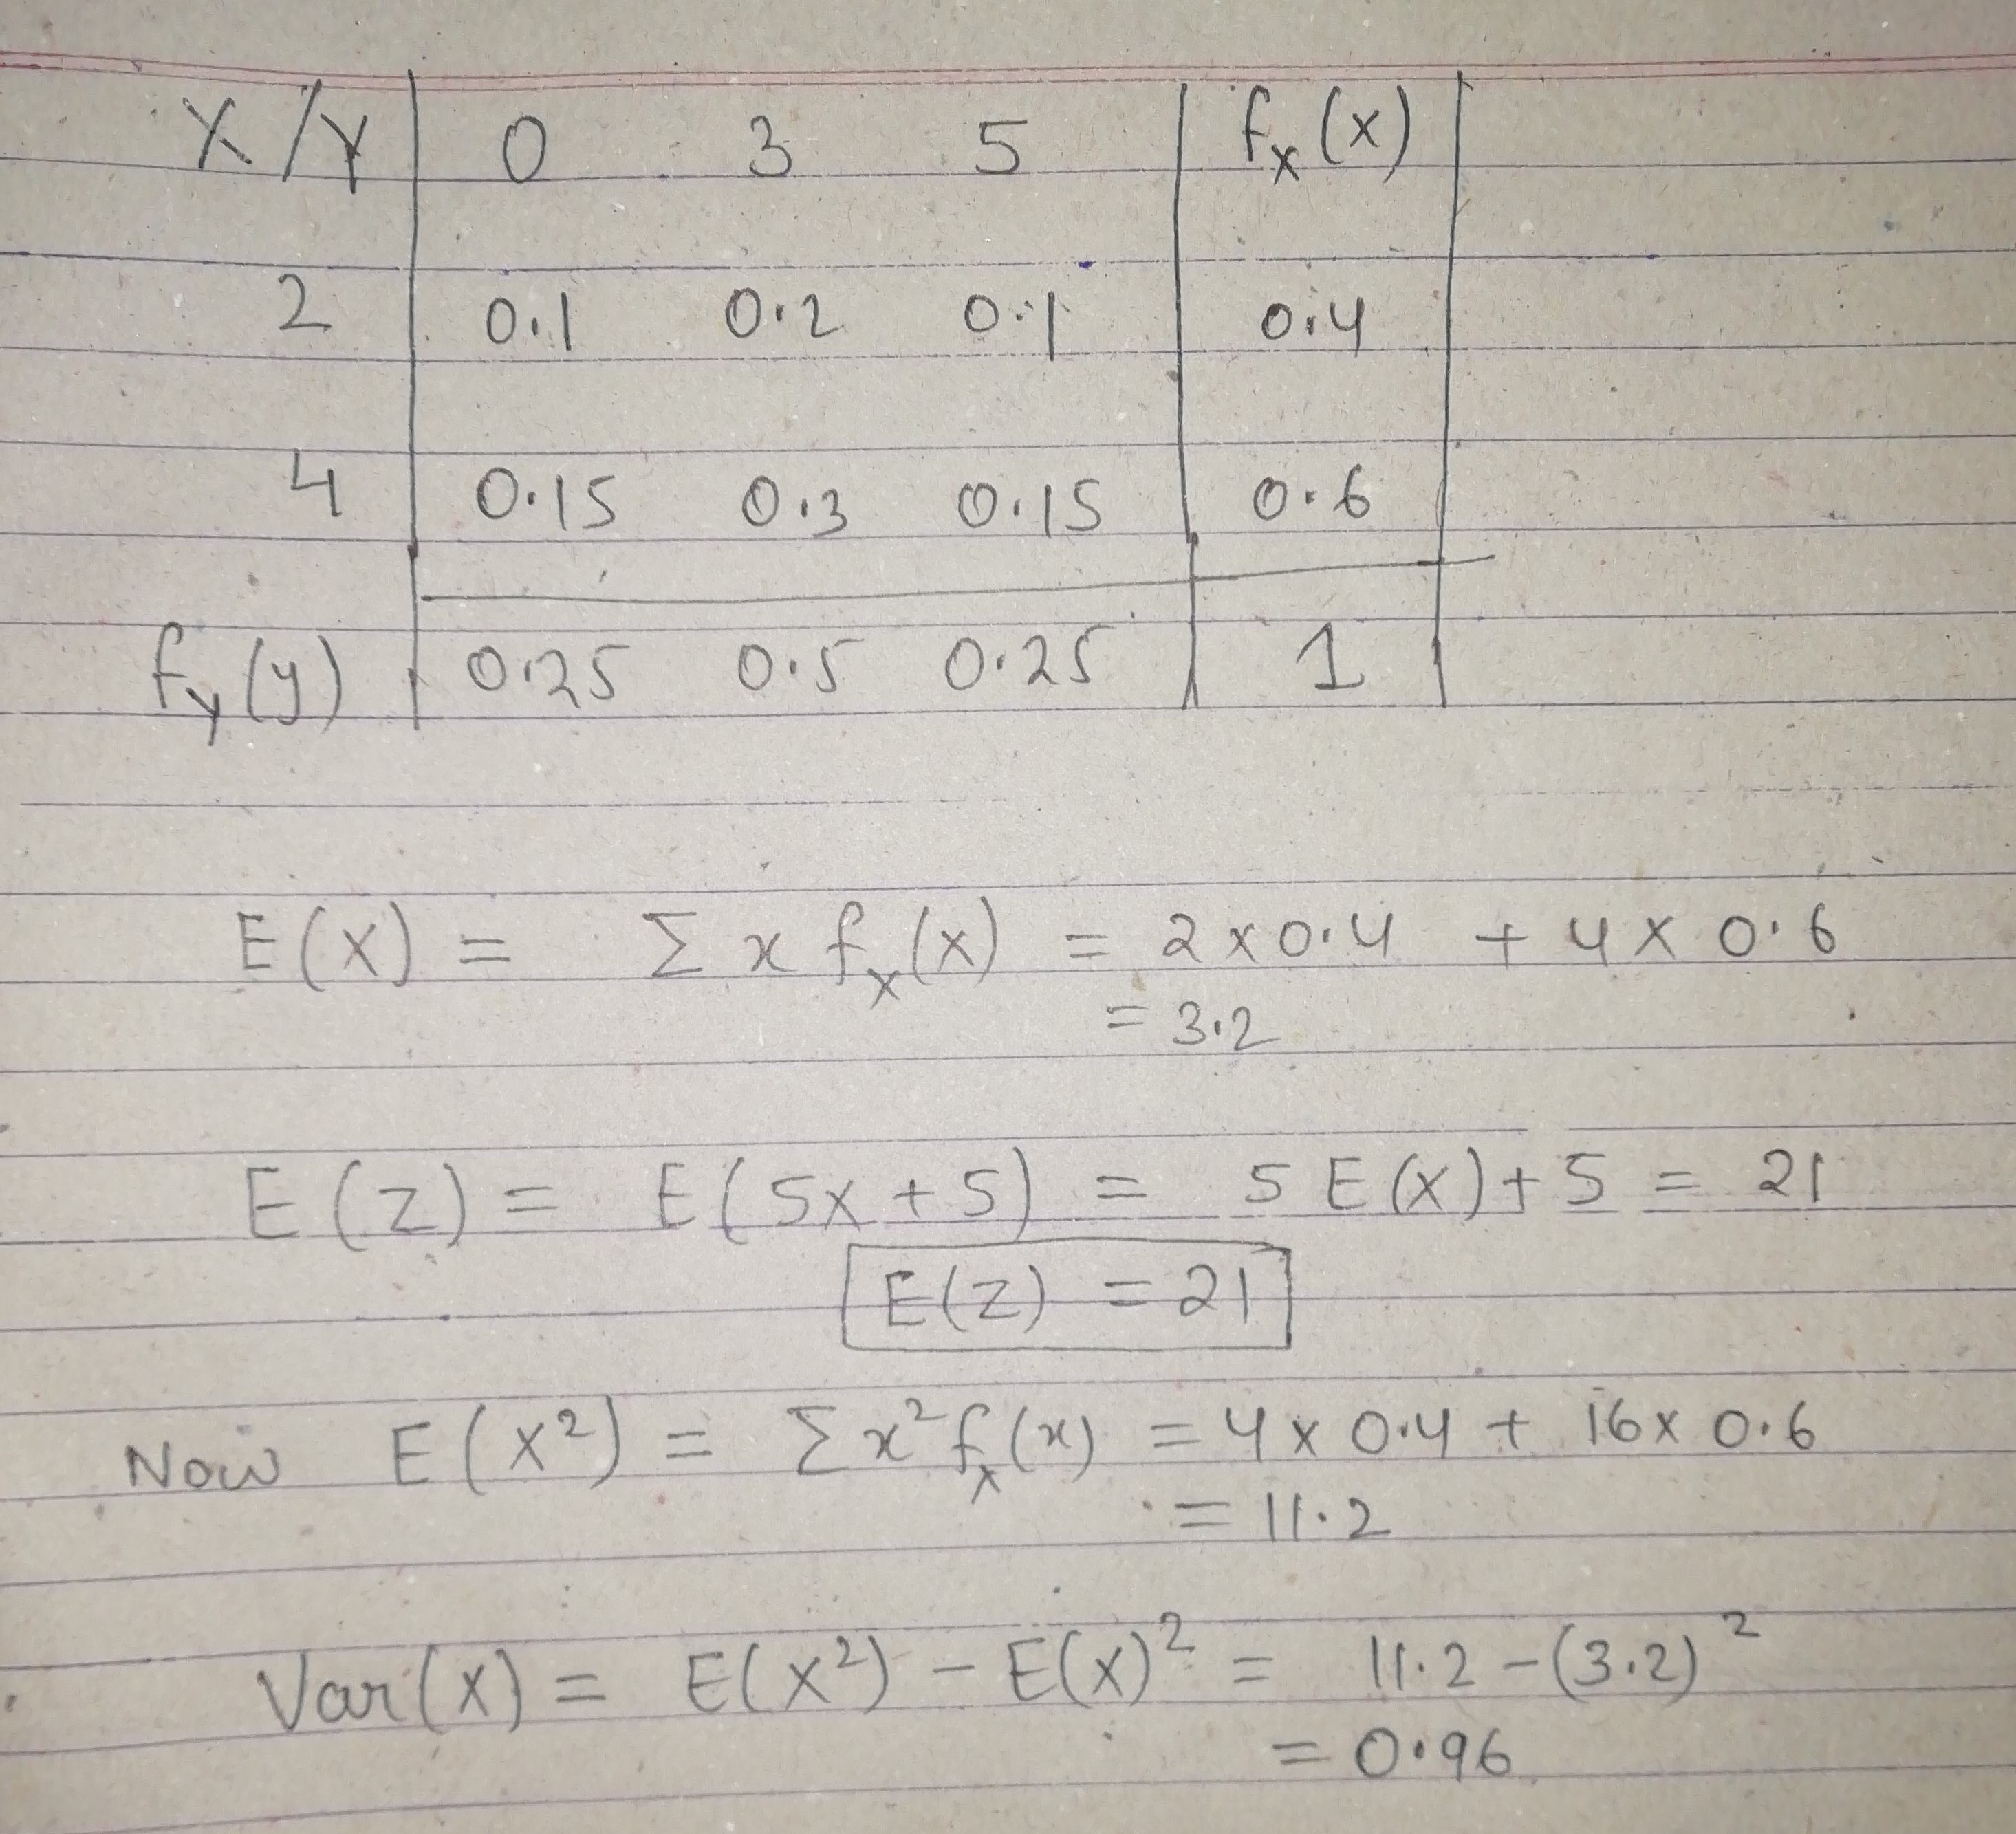 X/Y 0 3 5 fₓ(x)
2 0.1 0.2 0.1 0.4
4 0.15 0.3 0.15 0.6
fᵧ(y) 0.25 0.5 0.25 1
E(X) = Σ x fₓ(x) = 2 x 0.4 + 4 x 0.6
= 3.2
E(Z) = E(5X + 5) = 5 E(X) + 5 = 21
E(Z) = 21
Now E(X²) = Σ x² fₓ(x) = 4 x 0.4 + 16 x 0.6
= 11.2
Var(X) = E(X²) - E(X)² = 11.2 - (3.2)²
= 0.96